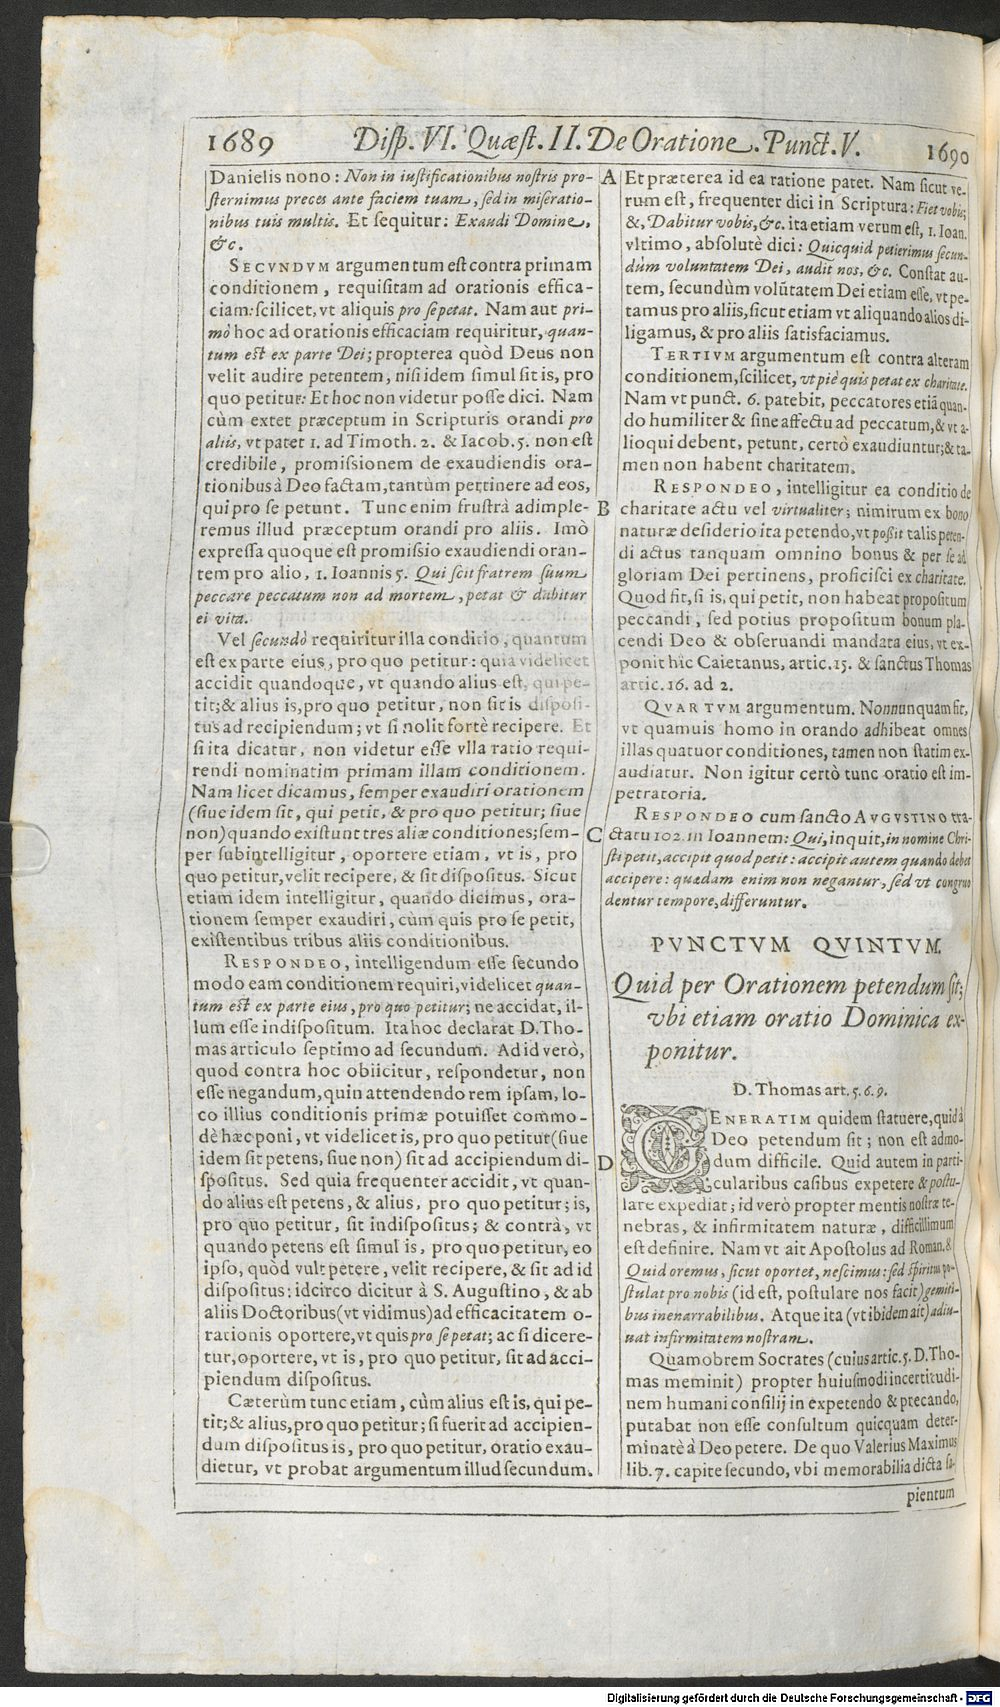 1689 Disp. VI. Quæst. II. De Oratione. Punct. V. 1690
Danielis nono: Non in iustificationibus nostris pro-
sternimus preces ante faciem tuam, sed in miseratio-
nibus tuis multis. Et sequitur: Exaudi Domine,
&c.
SECVNDVM argumentum est contra primam
conditionem, requisitam ad orationis effica-
ciam: scilicet, vt aliquis pro se petat. Nam aut pri-
mò hoc ad orationis efficaciam requiritur, quan-
tum est ex parte Dei; propterea quòd Deus non
velit audire petentem, nisi idem simul sit is, pro
quo petitur: Et hoc non videtur posse dici. Nam
cùm extet præceptum in Scripturis orandi pro
aliis, vt patet 1. ad Timoth. 2. & Iacob. 5. non est
credibile, promissionem de exaudiendis ora-
tionibus à Deo factam, tantùm pertinere ad eos,
qui pro se petunt. Tunc enim frustrà adimple-
remus illud præceptum orandi pro aliis. Imò
expressa quoque est promissio exaudiendi oran-
tem pro alio, 1. Ioannis 5. Qui scit fratrem suum
peccare peccatum non ad mortem, petat & dabitur
ei vita.
Vel secundò requiritur illa conditio, quantum
est ex parte eius, pro quo petitur: quia videlicet
accidit quandoque, vt quando alius est, qui pe-
tit; & alius is, pro quo petitur, non sit is disposi-
tus ad recipiendum; vt si nolit fortè recipere. Et
si ita dicatur, non videtur esse vlla ratio requi-
rendi nominatim primam illam conditionem.
Nam licet dicamus, semper exaudiri orationem
(siue idem sit, qui petit, & pro quo petitur; siue
non) quando existunt tres aliæ conditiones; sem-
per subintelligitur, oportere etiam, vt is, pro
quo petitur, velit recipere, & sit dispositus. Sicut
etiam idem intelligitur, quando dicimus, ora-
tionem semper exaudiri, cùm quis pro se petit,
existentibus tribus aliis conditionibus.
RESPONDEO, intelligendum esse secundo
modo eam conditionem requiri, videlicet quan-
tum est ex parte eius, pro quo petitur; ne accidat, il-
lum esse indispositum. Ita hoc declarat D. Tho-
mas articulo septimo ad secundum. Ad id verò,
quod contra hoc obiicitur, respondetur, non
esse negandum, quin attendendo rem ipsam, lo-
co illius conditionis primæ potuisset commo-
dè hæc poni, vt videlicet is, pro quo petitur (siue
idem sit petens, siue non) sit ad accipiendum di-
spositus. Sed quia frequenter accidit, vt quan-
do alius est petens, & alius, pro quo petitur; is,
pro quo petitur, sit indispositus; & contrà, vt
quando petens est simul is, pro quo petitur, eo
ipso, quòd vult petere, velit recipere, & sit ad id
dispositus: idcirco dicitur à S. Augustino, & ab
aliis Doctoribus (vt vidimus) ad efficacitatem o-
rationis oportere, vt quis pro se petat; ac si dicere-
tur, oportere, vt is, pro quo petitur, sit ad acci-
piendum dispositus.
Cæterùm tunc etiam, cùm alius est is, qui pe-
tit; & alius, pro quo petitur; si fuerit ad accipien-
dum dispositus is, pro quo petitur, oratio exau-
dietur, vt probat argumentum illud secundum.
A
B
C
D
Et præterea id ea ratione patet. Nam sicut ve-
rum est, frequenter dici in Scriptura: Fiet vobis;
&, Dabitur vobis, &c. ita etiam verum est, 1. Ioan.
vltimo, absolutè dici: Quicquid petierimus secun-
dùm voluntatem Dei, audit nos, &c. Constat au-
tem, secundùm volūtatem Dei etiam esse, vt pe-
tamus pro aliis, sicut etiam vt aliquando alios di-
ligamus, & pro aliis satisfaciamus.
TERTIVM argumentum est contra alteram
conditionem, scilicet, vt piè quis petat ex charitate.
Nam vt punct. 6. patebit, peccatores etiā quan-
do humiliter & sine affectu ad peccatum, & vt a-
lioqui debent, petunt, certò exaudiuntur; & ta-
men non habent charitatem.
RESPONDEO, intelligitur ea conditio de
charitate actu vel virtualiter; nimirum ex bono
naturæ desiderio ita petendo, vt possit talis peten-
di actus tanquam omnino bonus & per se ad
gloriam Dei pertinens, proficisci ex charitate.
Quod fit, si is, qui petit, non habeat propositum
peccandi, sed potius propositum bonum pla-
cendi Deo & obseruandi mandata eius, vt ex-
ponit hîc Caietanus, artic. 15. & sanctus Thomas
artic. 16. ad 2.
QVARTVM argumentum. Nonnunquam fit,
vt quamuis homo in orando adhibeat omnes
illas quatuor conditiones, tamen non statim ex-
audiatur. Non igitur certò tunc oratio est im-
petratoria.
RESPONDEO cum sancto AVGVSTINO tra-
ctatu 102. in Ioannem: Qui, inquit, in nomine Chri-
sti petit, accipit quod petit: accipit autem quando debet
accipere: quædam enim non negantur, sed vt congruo
dentur tempore, differuntur.
PVNCTVM QVINTVM.
Quid per Orationem petendum sit;
vbi etiam oratio Dominica ex-
ponitur.
D. Thomas art. 5. 6. 9.
GENERATIM quidem statuere, quid à
Deo petendum sit; non est admo-
dum difficile. Quid autem in parti-
cularibus casibus expetere & postu-
lare expediat; id verò propter mentis nostræ te-
nebras, & infirmitatem naturæ, difficillimum
est definire. Nam vt ait Apostolus ad Roman. 8.
Quid oremus, sicut oportet, nescimus: sed spiritus po-
stulat pro nobis (id est, postulare nos facit) gemiti-
bus inenarrabilibus. Atque ita (vt ibidem ait) adiu-
uat infirmitatem nostram.
Quamobrem Socrates (cuius artic. 5. D. Tho-
mas meminit) propter huiusmodi incertitudi-
nem humani consilij in expetendo & precando,
putabat non esse consultum quicquam deter-
minatè à Deo petere. De quo Valerius Maximus
lib. 7. capite secundo, vbi memorabilia dicta sa-
pientum
Digitalisierung gefördert durch die Deutsche Forschungsgemeinschaft - DFG